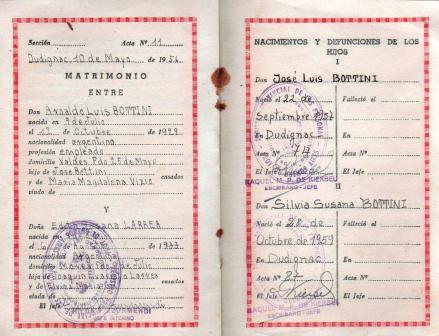 Sección Acta Nº 11
Dudignac, 10 de Mayo de 1956
MATRIMONIO
ENTRE
Don Arnaldo Luis BOTTINI
nacido en 9 de Julio
el 12 de Octubre de 1929
nacionalidad argentino
profesión empleado
domicilio Valdes Pdo 25 de Mayo
hijo de José Bottini
y de Maria Magdalena casados
viudo de
Y
Doña LARREA
nacida en
el de 1933
nacionalidad Argentina
domicilio
hijo de Joaquin Larrea
y casados
viuda de
El Jefe
JEFE INTERINO
NACIMIENTOS Y DEFUNCIONES DE LOS
HIJOS
I
Don José Luis BOTTINI
Nació el 22 de Falleció el
Septiembre 1957
en Dudignac en
Acta Nº Acta Nº
El Jefe
RAQUEL M. P. DE KIERBEL
ESCRIBANO-JEFE
II
Don Silvia Susana BOTTINI
Nació el 28 de Falleció el
Octubre de 1959
en Dudignac en
Acta Nº 87 Acta Nº
El Jefe El Jefe
RAQUEL M. P. DE KIERBEL
ESCRIBANO-JEFE